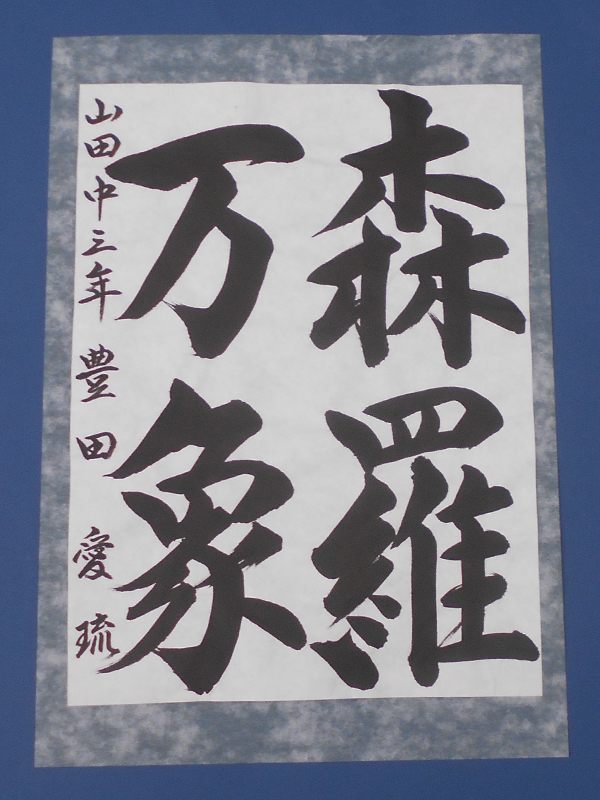 森羅
万象
山田中三年 豊田 愛琉